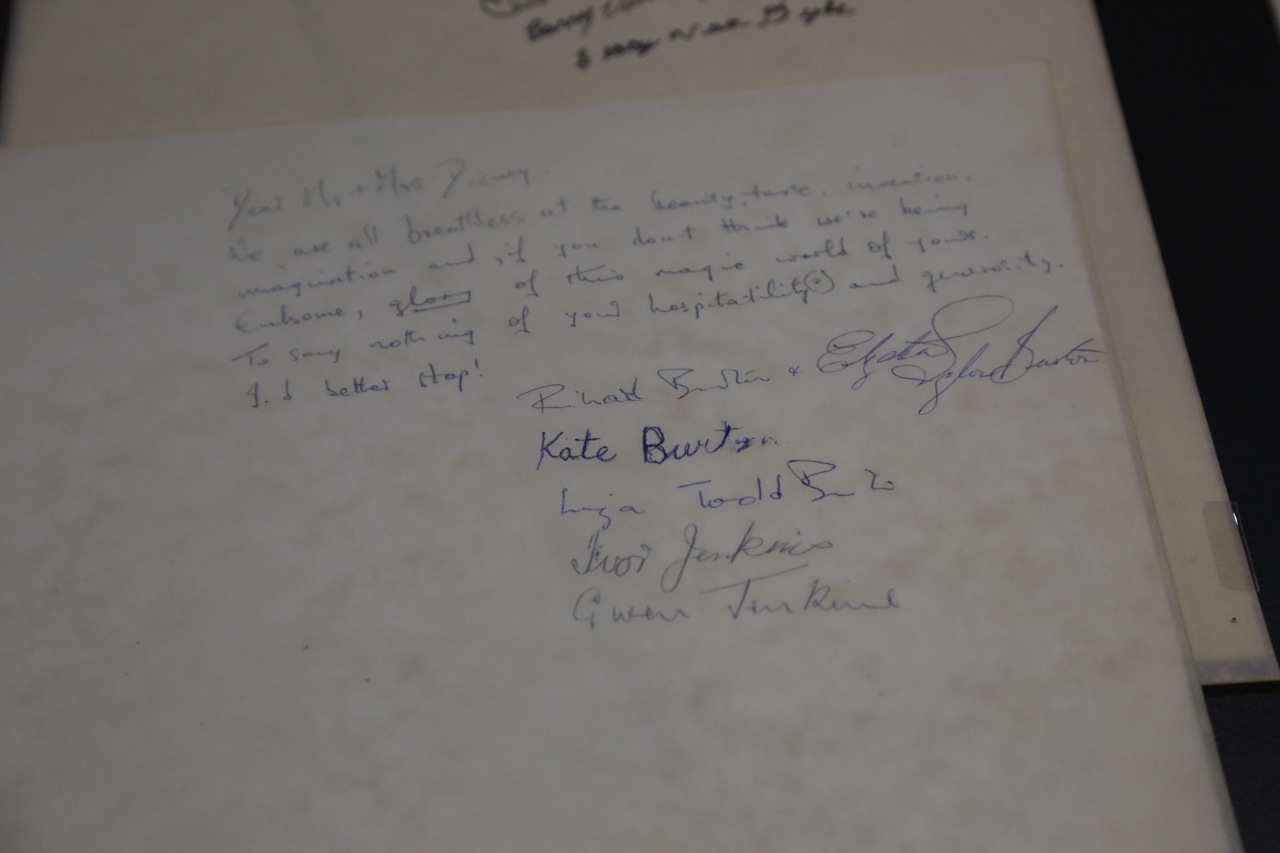 Dear Mr. & Mrs Disney.
We are all breathless at the beauty, taste, invention,
imagination and, if you don't think we're being
fulsome, glory of this magic world of yours.
To say nothing of your hospitatility(*) and generosity.
I'd better stop!
Richard Burton & Elizabeth Taylor Burton
Kate Burton
Liza Todd Burton
Ivor Jenkins
Gwen Jenkins